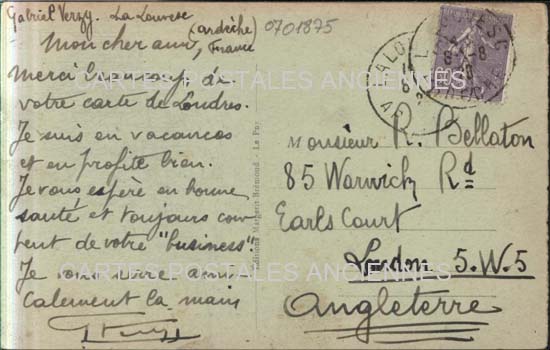 Gabriel Verzy. La Louvesc
(Ardèche)
France
0701875
Mon cher ami,
Merci beaucoup de
votre carte de Londres.
Je suis en vacances
et en profite bien.
Je vous espère en bonne
santé et toujours con-
tent de votre "business".
Je vous serre ami
calement la main
CARTES POSTALES ANCIENNES
Editions Margerit-Brémond - Le Puy
Monsieur R. Bellaton
85 Warwick Rd
Earls Court
London S.W.5
Angleterre
CARTES POSTALES ANCIENNES